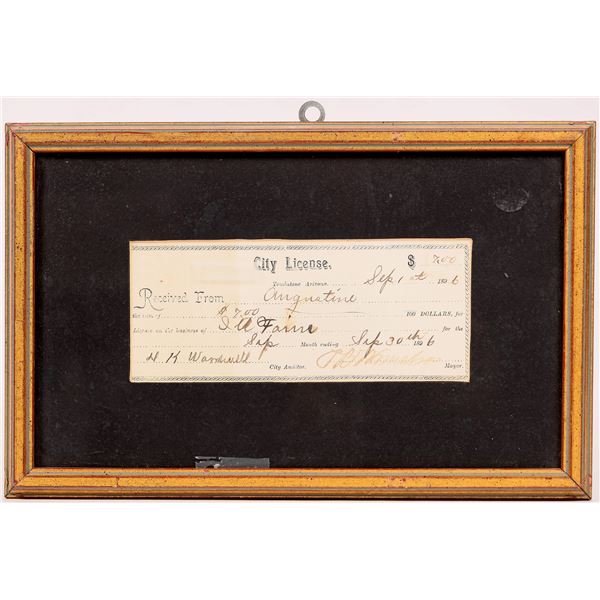 City License. $ 7.00
Tombstone Arizona. Sep 1st 1896
Received From Augustine
the sum of $7.00 100 DOLLARS, for
License on the business of for the
Sep Month ending Sep 30th 1896
City Auditor. Mayor.